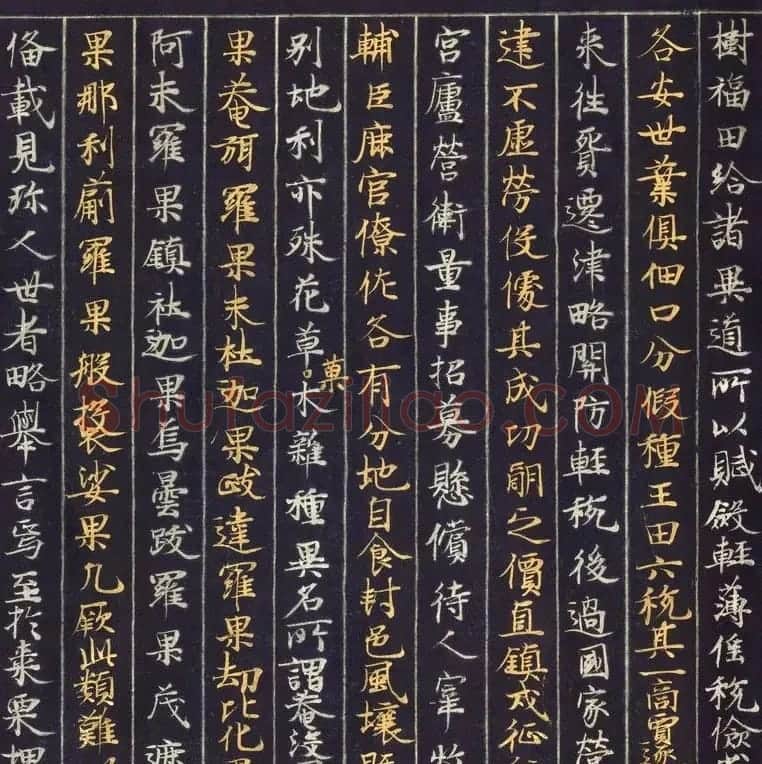 樹福田給諸異道所以賦斂輕薄徭稅儉
各安世業俱佃口分假種王田六稅其一商賈逐
来往貿遷津略開防輕稅後過國家營
建不虛勞役據其成功酬之價直鎮戍征
宮廬營衛量事招募懸償待人宰牧
輔臣庶官僚佐各有分地自食封邑風壤既
別地利亦殊花草菓木雜種異名所謂菴沒
果菴弭羅果末杜迦果跋達羅果劫比化果
阿末羅果鎮杜迦果烏曇跋羅果茂遮
果那利薊羅果般橠娑果凡厥此類難
俻載見珎人世者略舉言焉至於棗栗椑
Shufaziliao.com